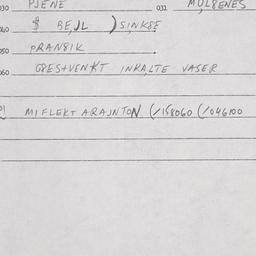 030 PJENE 031 MÜLBENES
040 $ BEJL ) SINKSE
050 PRANSIK .
060 GPESTVENKT INKALTE VASER
MIFLEKT ARAJNTON (/158060 (/046100